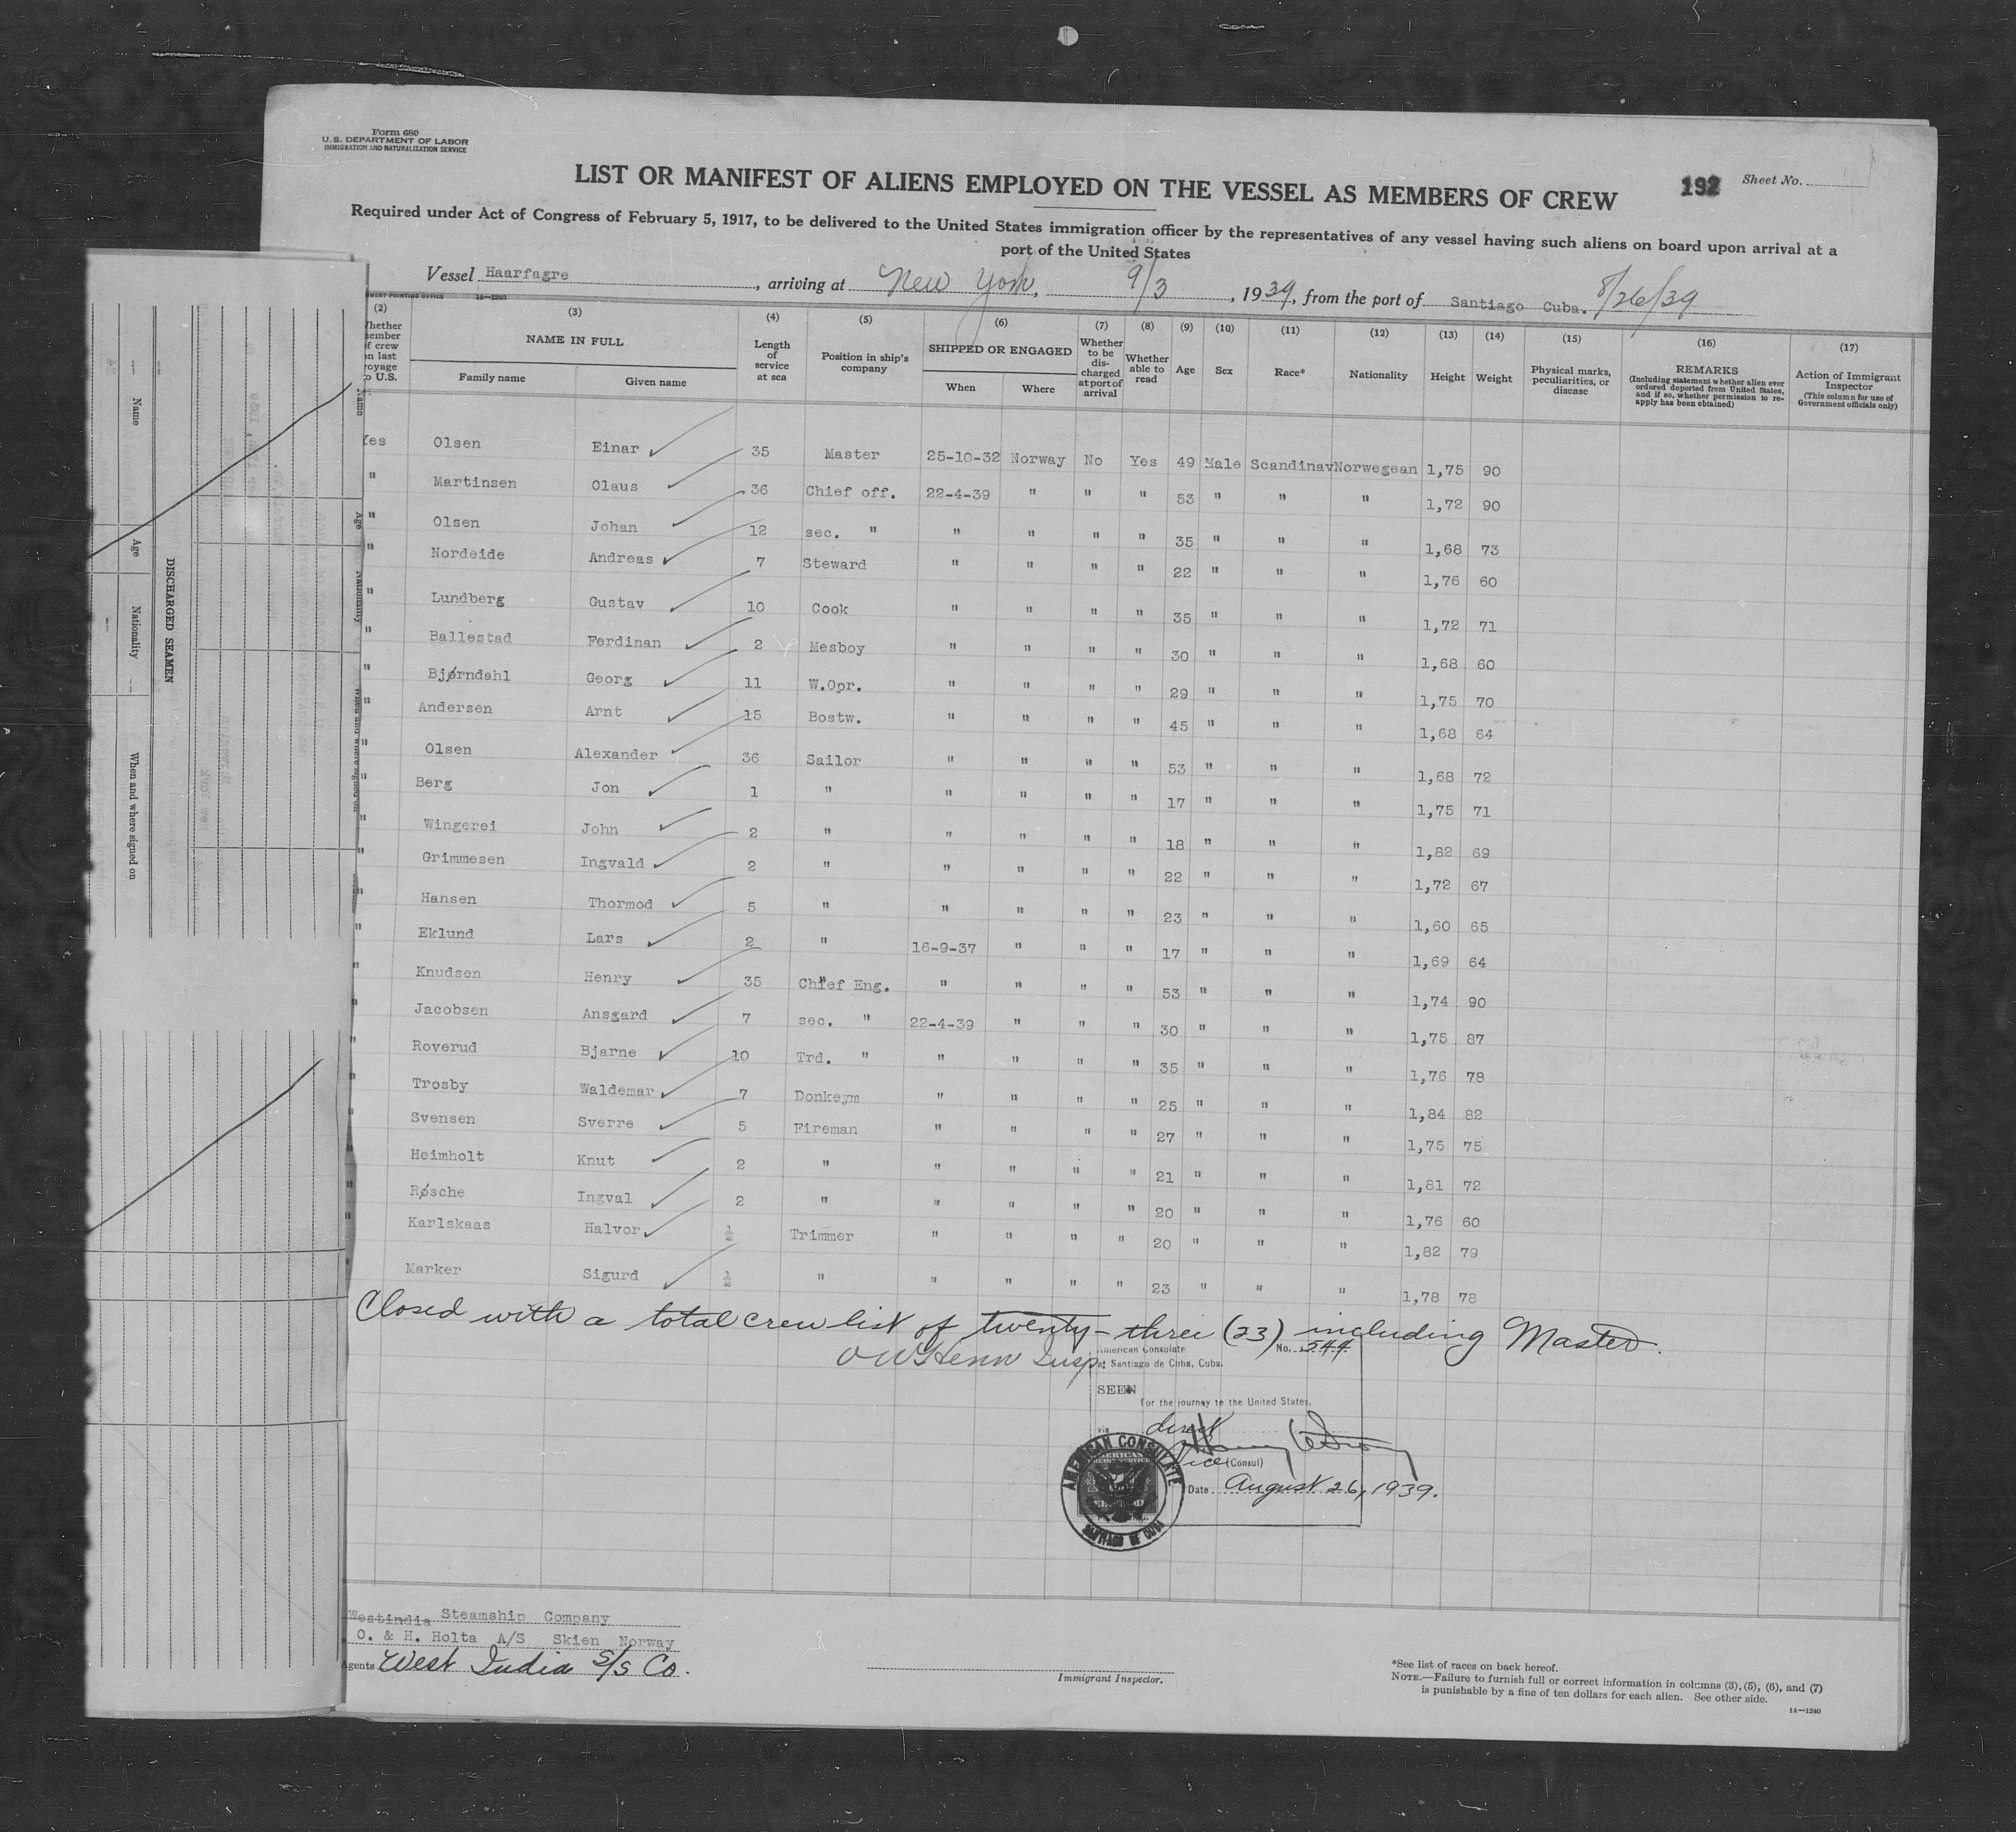 Form 680
U. S. DEPARTMENT OF LABOR
IMMIGRATION AND NATURALIZATION SERVICE
LIST OR MANIFEST OF ALIENS EMPLOYED ON THE VESSEL AS MEMBERS OF CREW
192 Sheet No.
Required under Act of Congress of February 5, 1917, to be delivered to the United States immigration officer by the representatives of any vessel having such aliens on board upon arrival at a
port of the United States
Vessel Haarfagre, arriving at New York, 9/3, 1939, from the port of Santiago Cuba. 8/26/39
14—1240
(2) (3) (4) (5) (6) (7) (8) (9) (10) (11) (12) (13) (14) (15) (16) (17)
Whether member of crew on last voyage to U.S. NAME IN FULL Family name Given name Length of service at sea Position in ship's company SHIPPED OR ENGAGED When Where Whether to be discharged at port of arrival Whether able to read Age Sex Race* Nationality Height Weight Physical marks, peculiarities, or disease REMARKS (Including statement whether alien ever ordered deported from United States, and if so, whether permission to reapply has been obtained) Action of Immigrant Inspector (This column for use of Government officials only)
Yes Olsen Einar 35 Master 25-10-32 Norway No Yes 49 Male Scandinav Norwegean 1,75 90
" Martinsen Olaus 36 Chief off. 22-4-39 " " " 53 " " " 1,72 90
" Olsen Johan 12 sec. " " " " " 35 " " " 1,68 73
" Nordeide Andreas 7 Steward " " " " 22 " " " 1,76 60
" Lundberg Gustav 10 Cook " " " " 35 " " " 1,72 71
" Ballestad Ferdinan 2 Mesboy " " " " 30 " " " 1,68 60
" Bjørndahl Georg 11 W.Opr. " " " " 29 " " " 1,75 70
" Andersen Arnt 15 Bostw. " " " " 45 " " " 1,68 64
" Olsen Alexander 36 Sailor " " " " 53 " " " 1,68 72
" Berg Jon 1 " " " " " 17 " " " 1,75 71
" Wingerei John 2 " " " " " 18 " " " 1,82 69
" Grimmesen Ingvald 2 " " " " " 22 " " " 1,72 67
" Hansen Thormod 5 " " " " " 23 " " " 1,60 65
" Eklund Lars 2 " 16-9-37 " " " 17 " " " 1,69 64
" Knudsen Henry 35 Chief Eng. " " " " 53 " " " 1,74 90
" Jacobsen Ansgard 7 sec. " 22-4-39 " " " 30 " " " 1,75 87
" Roverud Bjarne 10 Trd. " " " " " 35 " " " 1,76 78
" Trosby Waldemar 7 Donkeym " " " " 25 " " " 1,84 82
" Svensen Sverre 5 Fireman " " " " 27 " " " 1,75 75
" Heimholt Knut 2 " " " " " 21 " " " 1,81 72
" Røsche Ingval 2 " " " " " 20 " " " 1,76 60
" Karlskaas Halvor ½ Trimmer " " " " 20 " " " 1,82 79
" Marker Sigurd ½ " " " " " 23 " " " 1,78 78
Closed with a total crew list of twenty-three (23) including Master.
Insp.
American Consulate No. 544
at Santiago de Cuba, Cuba.
SEEN
For the journey to the United States,
via direct
Vice (Consul)
Date August 26, 1939.
AMERICAN CONSULATE
SANTIAGO DE CUBA
Westindia Steamship Company
O. & H. Holta A/S Skien Norway
Agents West India S/S Co.
Immigrant Inspector.
*See list of races on back hereof.
NOTE.—Failure to furnish full or correct information in columns (3), (5), (6), and (7)
is punishable by a fine of ten dollars for each alien. See other side.
14—1240
DISCHARGED SEAMEN
Name Age Nationality When and where signed on